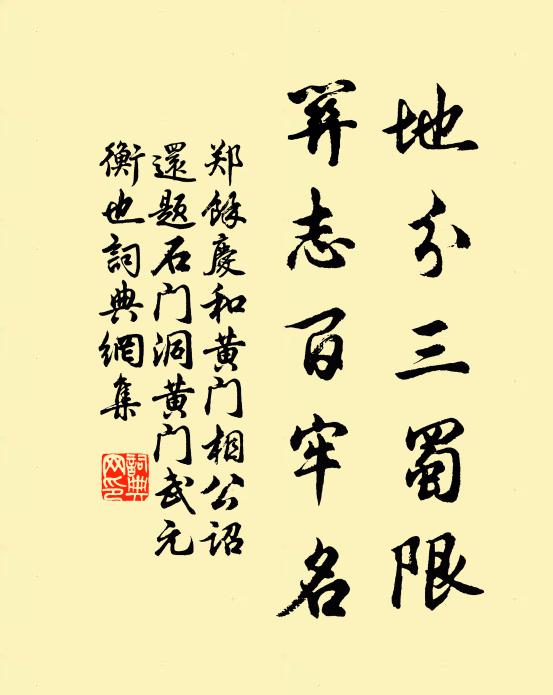 地分三蜀限
关志百牢名
郑餘慶和黄门相公詔
還题石门洞黄门武元
衡也詞典網集
詞典网印